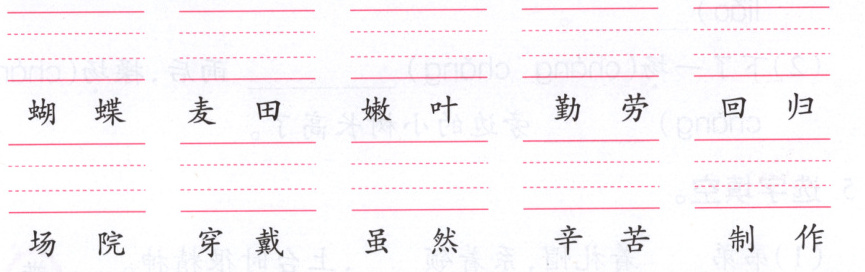 蝴 蝶 麦 田 嫩 叶 勤 劳 回 归
场 院 穿 戴 虽 然 辛 苦 制 作